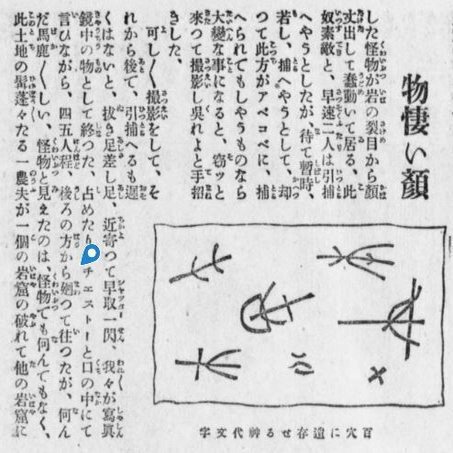 物悽い顔
した怪物が岩の裂目から顔
丈出して蠢動いて居る、此
奴素敵と、早速二人は引捕
へやうとしたが、待て暫時、
若し、捕へやうとして、却
つて此方がアベコベに、捕
へられでもしやうものなら
大變な事になると、窃ッと
來つて撮影し呉れよと手招
きした、
可し〱撮影をして、そ
れから後で、引捕へるも遲
くはないと、抜き足差し足 近寄つて早取一閃、我々が寫眞
鏡中の物として終つた、占めたり チエストーと口の中にて
言ひながら、四五人程 後ろの方から廻つて往つたが、何ん
だ馬鹿〱しい、怪物と見えたのは、怪物でも何んでもなく、
此土地の髯蓬々たる一農夫が一個の岩窟の破れて他の岩窟に
百穴に遺存せる神代文字